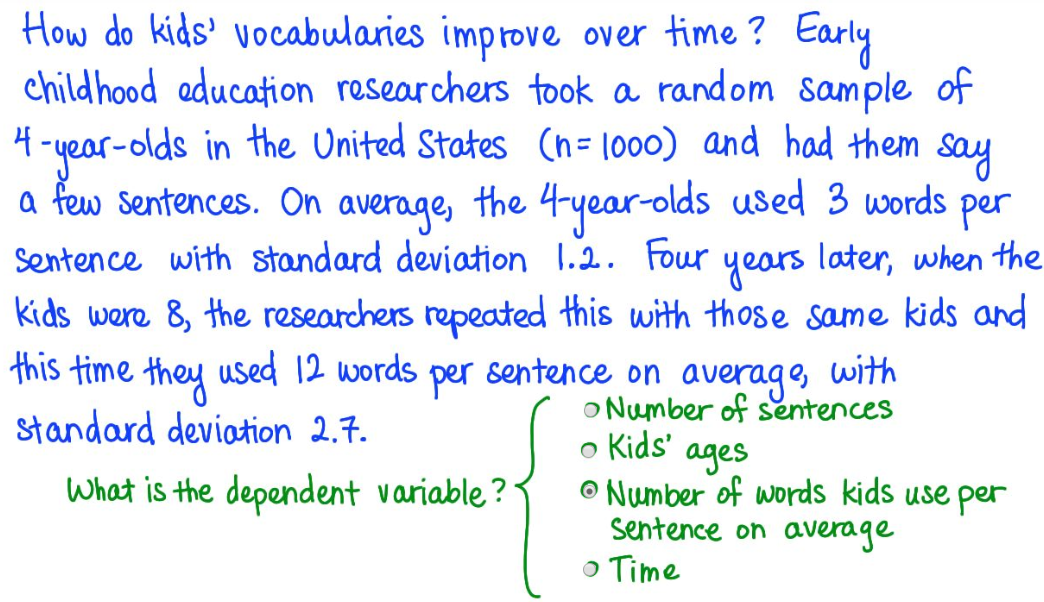 How do kids' vocabularies improve over time? Early
childhood education researchers took a random sample of
4-year-olds in the United States (n=1000) and had them say
a few sentences. On average, the 4-year-olds used 3 words per
sentence with standard deviation 1.2. Four years later, when the
kids were 8, the researchers repeated this with those same kids and
this time they used 12 words per sentence on average, with
standard deviation 2.7.
What is the dependent variable?
Number of sentences
Kids' ages
Number of words kids use per
sentence on average
Time